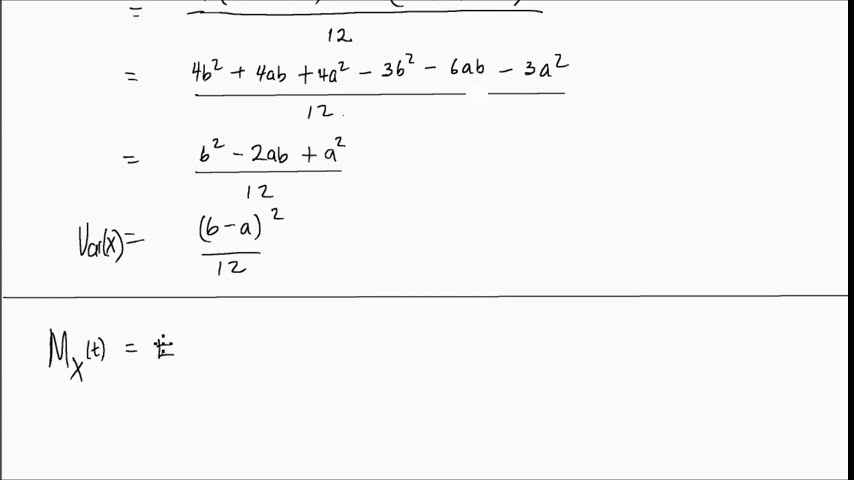 =
12
= 4b² + 4ab + 4a² - 3b² - 6ab - 3a²
12
= b² - 2ab + a²
12
Var(X) = (b-a)²
12
M_X(t) =